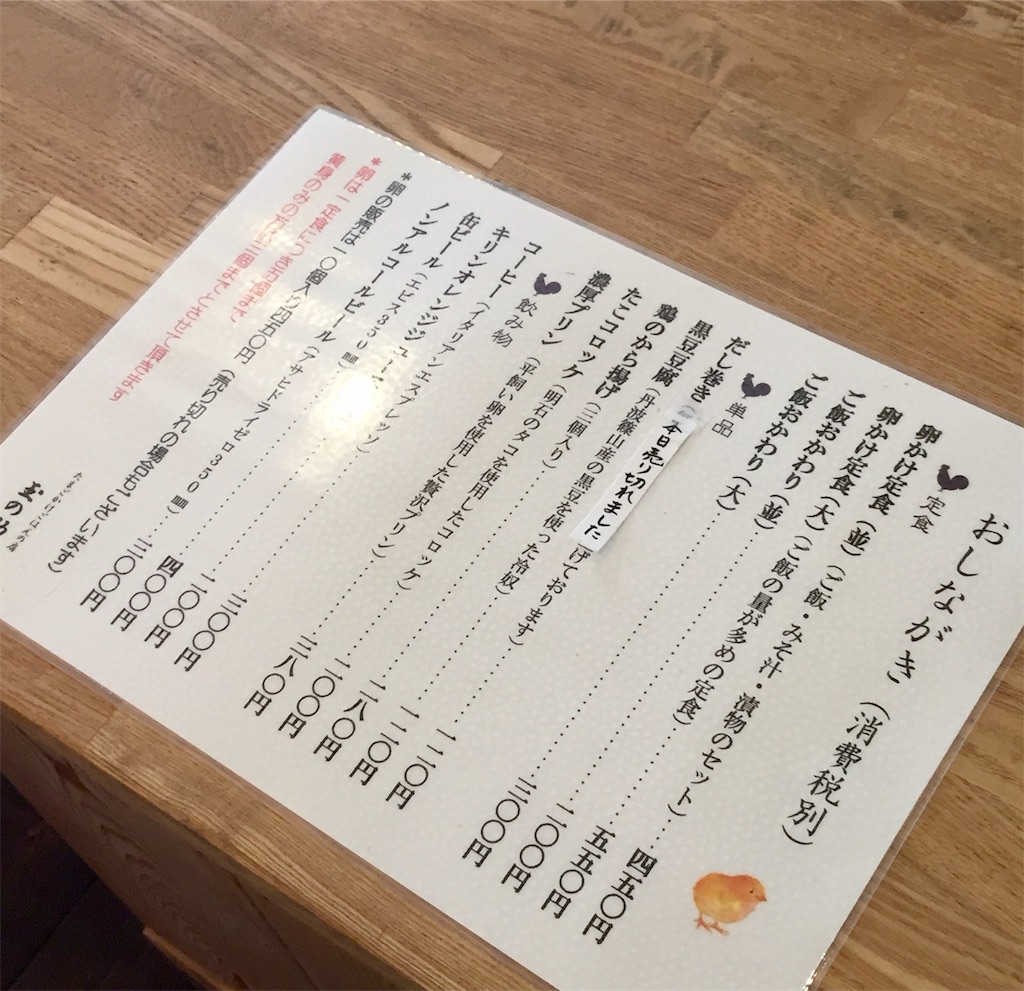 おしながき(消費税別)
定食
卵かけ定食(並)(ご飯・みそ汁・漬物のセット)……四五〇円
卵かけ定食(大)(ご飯の量が多めの定食)……五五〇円
ご飯おかわり(並)……二〇〇円
ご飯おかわり(大)……三〇〇円
単品
だし巻き(本日売り切れました げております)
黒豆豆腐(丹波篠山産の黒豆を使った冷奴)
鶏のから揚げ(三個入り)……二八〇円
たこコロッケ(明石のタコを使用したコロッケ)……二〇〇円
濃厚プリン(平飼い卵を使用した贅沢プリン)……三八〇円
飲み物
コーヒー(イタリアンエスプレッソ)……三〇〇円
キリンオレンジジュース……二〇〇円
缶ビール(エビス350㎖)……四〇〇円
ノンアルコールビール(アサヒドライゼロ350㎖)……三〇〇円
*卵の販売は一〇個入り四五〇円(売り切れの場合もございます)
*卵は一定食につき五個まで
黄身のみの方は三個までとさせて頂きます
たまごかけごはんの店
玉の